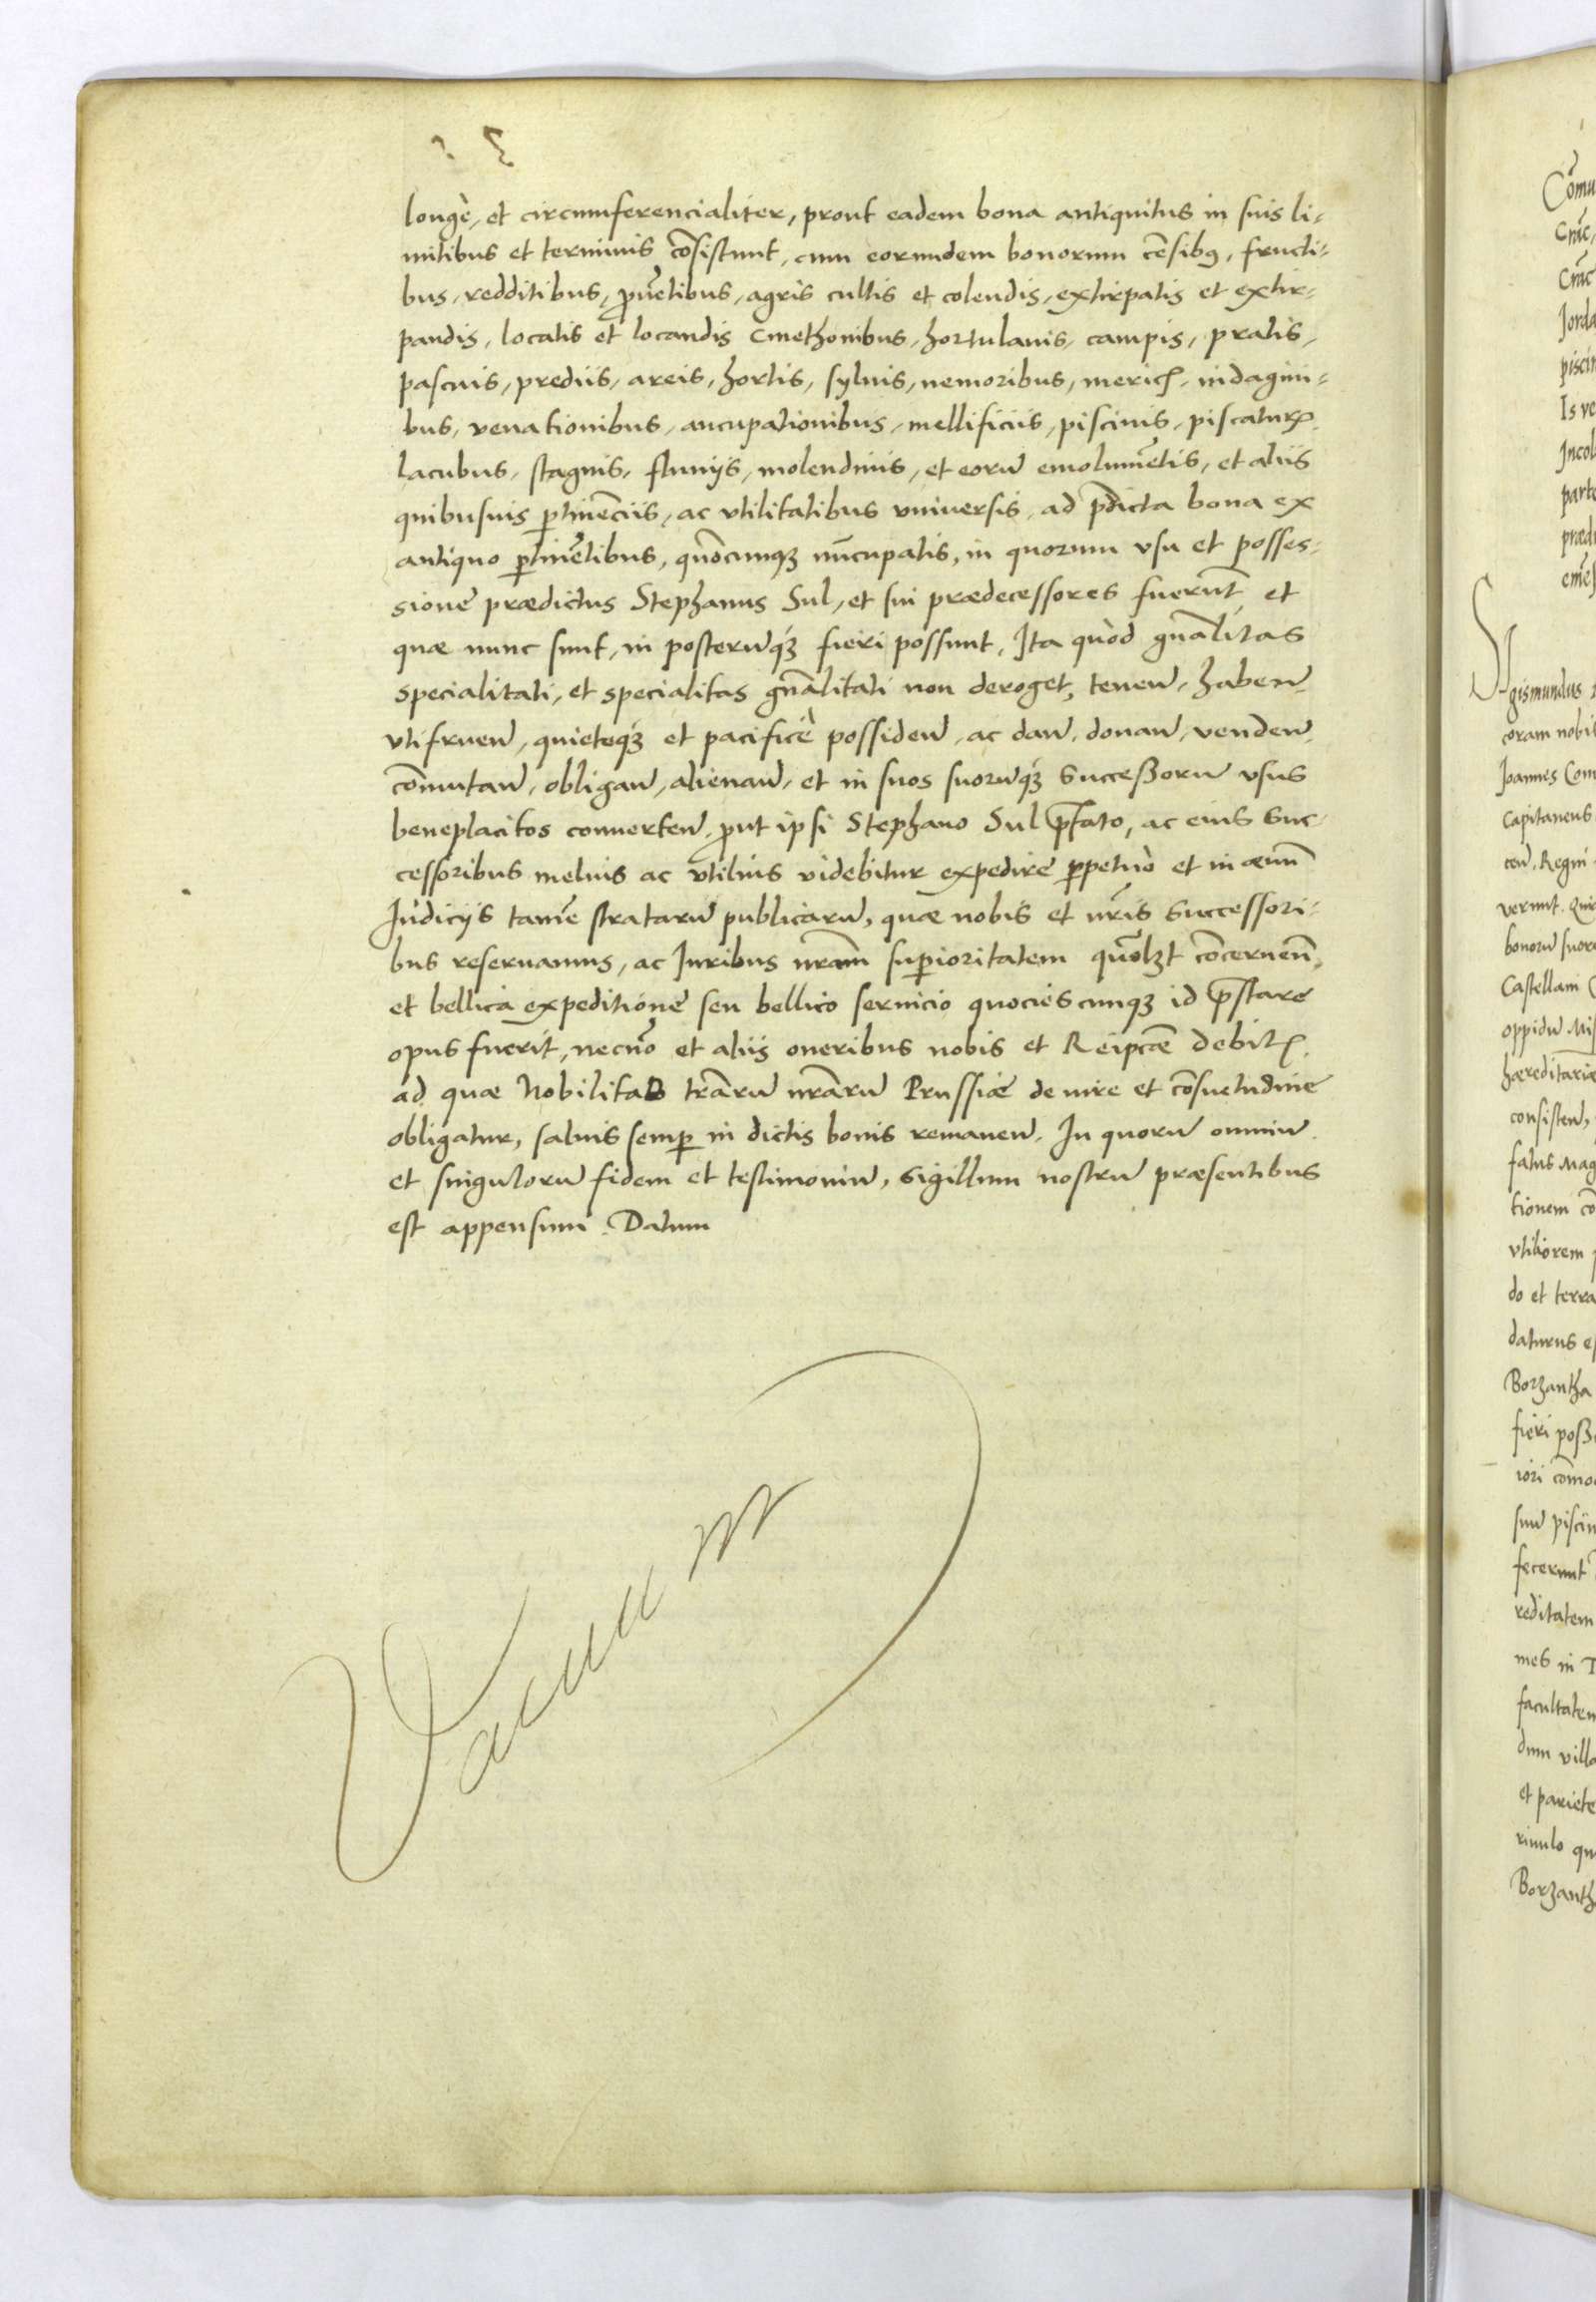 longè, et circumferencialiter, prout eadem bona antiquitus in suis li-
mitibus et terminis cōsistunt, cum eorundem bonorum cēsibꝯ, fructi-
bus, redditibus, ꝓuētibus, agris cultis et colendis, extirpatis et extir-
pandis, locatis et locandis Cmethonibus, hortulanis, campis, pratis,
pascuis, prediis, areis, hortis, syluis, nemoribus, mericꝭ, indagini-
bus, venationibus, aucupationibus, mellificiis, piscinis, piscaturꝭ
lacubus, stagnis, fluuiis, molendinis, et eorū emolumētis, et aliis
quibusuis ꝑtinēciis, ac vtilitatibus vniuersis, ad p̄dicta bona ex
antiquo ꝑtinētibus, quōcunqꝫ nūcupatis, in quorum vsu et posses-
sione prædictus Stephanus Sul, et sui prædecessores fuerūt, et
quæ nunc sunt, in posterūqꝫ fieri possunt, Ita quòd gn̄alitas
specialitati, et specialitas gn̄alitati non deroget, teneñ, habeñ,
vtifrueñ, quieteqꝫ et pacificè possideñ, ac dañ, donañ, vendeñ,
cōmutañ, obligañ, alienañ, et in suos suorūqꝫ Successorū vsus
beneplacitos conuerteñ, ꝓut ipsi Stephano Sul p̄fato, ac eius Suc-
cessoribus melius ac vtilius videbitur expedire ꝑpetuò et in æuū
Iudiciis tamē stratarū publicarū, quæ nobis et nr̄is Successori-
bus reseruamus, ac Iuribus nr̄am suꝑioritatem quōlꝫt cōcerneñ,
et bellica expeditione seu bellico seruicio quociescunqꝫ id p̄stare
opus fuerit, necnō et aliis oneribus nobis et Reipcæ debitꝭ,
ad quæ Nobilitas tr̄arū nr̄arū Prussiæ de iure et cōsuetudine
obligatur, saluis semꝑ in dictis bonis remaneñ. In quorū omniū
et singulorū fidem et testimoniū, Sigillum nostrū præsentibus
est appensum. Datum
Vacuum
Cōmu
Jorda
piscin
Is ve
Incol
parte
prædi
Sigismundus
coram nobil
Joannes Com
Capitaneus
ceñ. Regni
verunt. Qui
bonorū suor
Castellani
oppidū Mis
hæreditariæ
consisteñ,
fatus Mag
tionem cō
vtiliorem
do et terra
daturus e
Borzantha
fieri poss
iori cōmo
suū piscin
fecerunt
reditatem
mes in
facultatem
dum villa
et pariete
riuulo qu
Borzanth